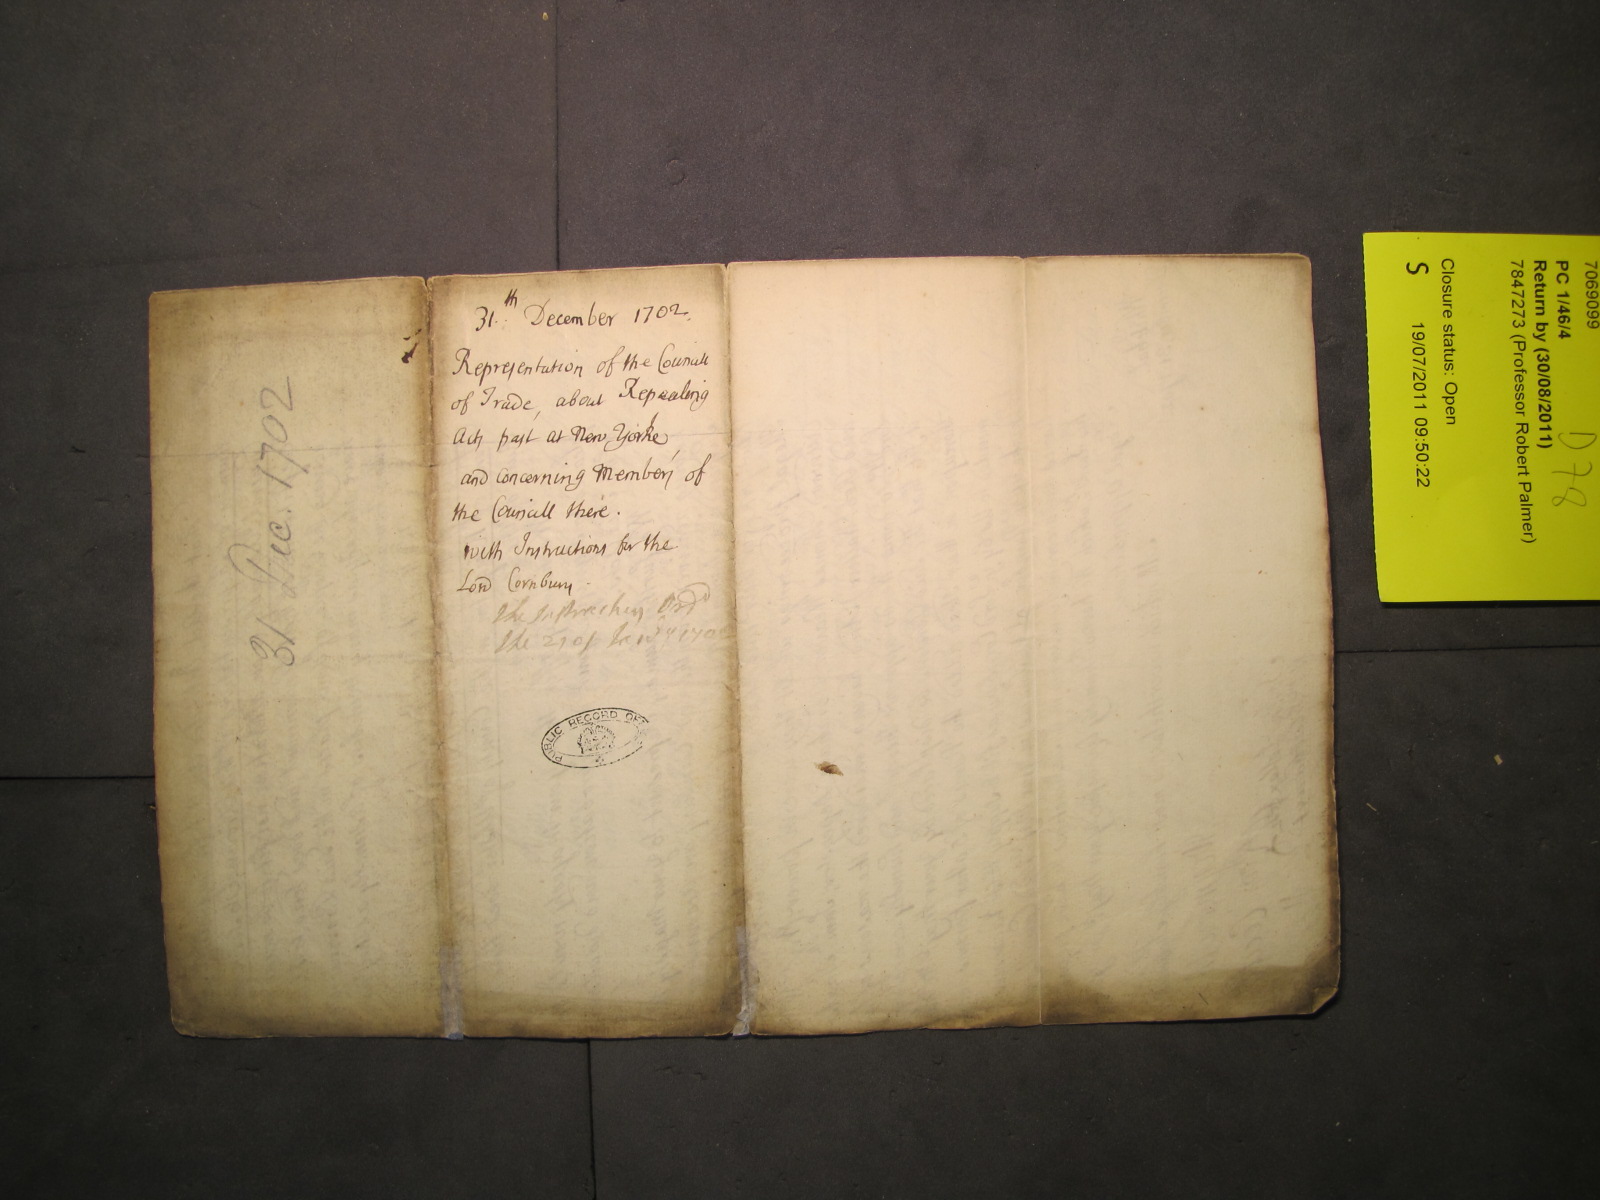 31 Dec. 1702
31.th December 1702.
Representation of the Councill
of Trade, about Repealing
Acts past at New Yorke
and concerning Members of
the Councill there.
with Instructions for the
Lord Cornbury.
The Instructions Ord
the 21 of
PUBLIC RECORD OFF
7069099
PC 1/46/4
Return by (30/08/2011)
7847273 (Professor Robert Palmer)
D 78
Closure status: Open
S 19/07/2011 09:50:22